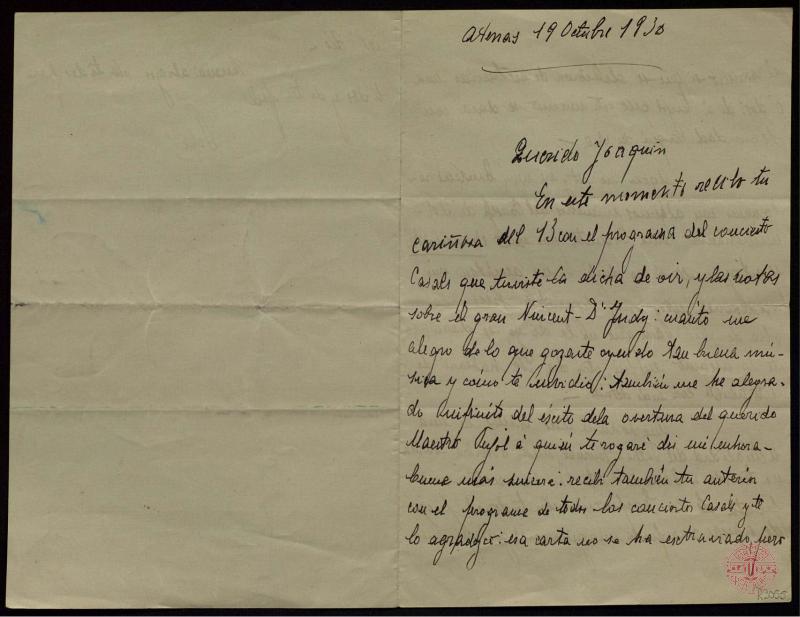 Atenas 19 Octubre 1930
Querido Joaquin
En este momento recibo tu
cariñosa del 13 con el programa del concierto
Casals que tuviste la dicha de oir, y las notas
sobre el gran Vincent-D'Indy: cuánto me
alegro de lo que gozaste oyendo tan buena mú-
sica y cómo te envidio: también me he alegra-
do infinito del éxcito de la overtura del querido
Maestro Pujol á quién te rogaré des mi enhora-
buena más sincera: recibí también tu anterior
con el programa de todos los conciertos Casals y te
lo agradezco: esa carta no se ha extraviado, pero
R.3055